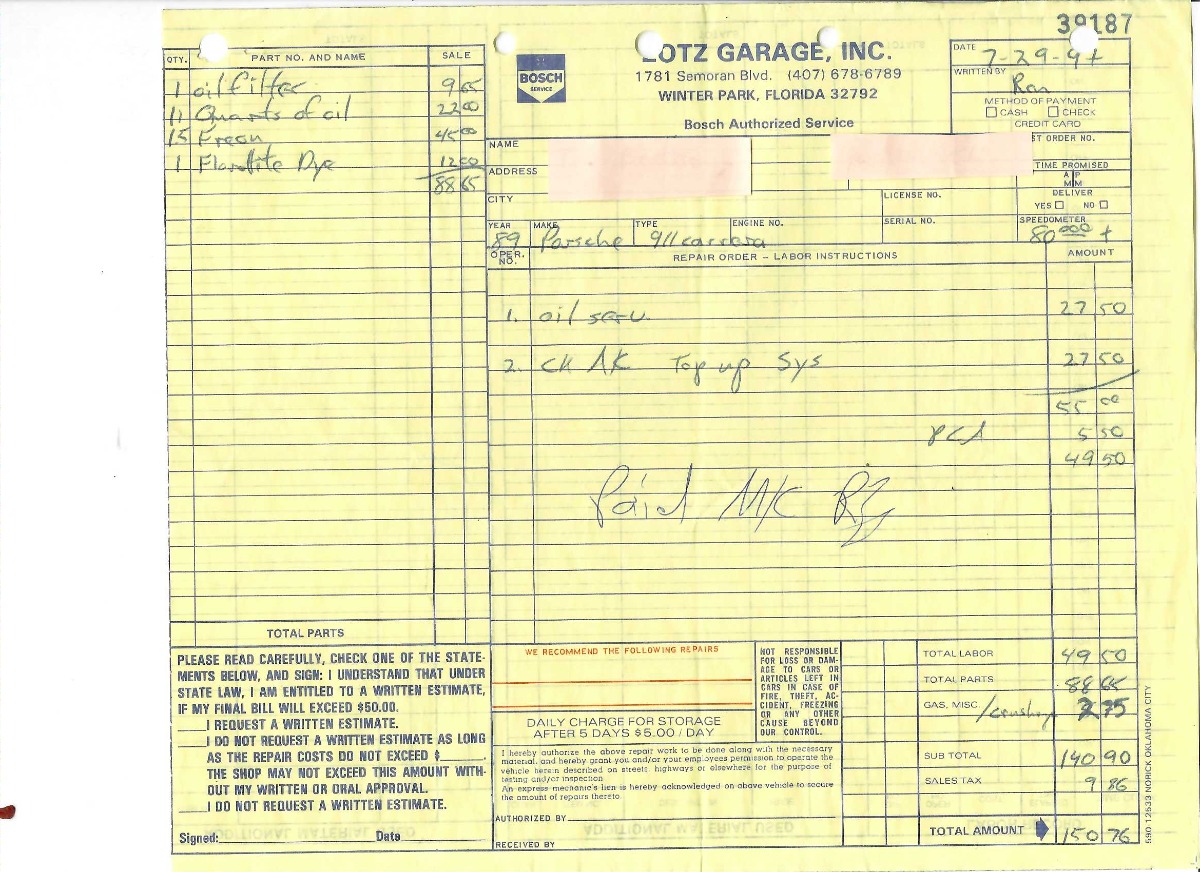 39187
QTY. PART NO. AND NAME SALE
1 oil filter 9 65
11 Quarts of oil 22 00
15 Freon 45 00
1 Dye 12 00
88 65
TOTAL PARTS
BOSCH
SERVICE
LOTZ GARAGE, INC.
1781 Semoran Blvd. (407) 678-6789
WINTER PARK, FLORIDA 32792
Bosch Authorized Service
DATE 7-29-94
WRITTEN BY Ron
METHOD OF PAYMENT
☐ CASH ☐ CHECK
CREDIT CARD
NAME
ST ORDER NO.
ADDRESS
TIME PROMISED
A P
M M
CITY
LICENSE NO.
DELIVER
YES ☐ NO ☐
YEAR MAKE TYPE ENGINE NO. SERIAL NO. SPEEDOMETER
89 Porsche 911 carrera 80000 +
OPER. NO. REPAIR ORDER – LABOR INSTRUCTIONS AMOUNT
1. oil serv. 27 50
2. CK A/C Top up Sys 27 50
55 00
PCA 5 50
49 50
Paid M/C
PLEASE READ CAREFULLY, CHECK ONE OF THE STATE-
MENTS BELOW, AND SIGN: I UNDERSTAND THAT UNDER
STATE LAW, I AM ENTITLED TO A WRITTEN ESTIMATE,
IF MY FINAL BILL WILL EXCEED $50.00.
____I REQUEST A WRITTEN ESTIMATE.
____I DO NOT REQUEST A WRITTEN ESTIMATE AS LONG
AS THE REPAIR COSTS DO NOT EXCEED $______.
THE SHOP MAY NOT EXCEED THIS AMOUNT WITH-
OUT MY WRITTEN OR ORAL APPROVAL.
____I DO NOT REQUEST A WRITTEN ESTIMATE.
Signed: Date
WE RECOMMEND THE FOLLOWING REPAIRS
DAILY CHARGE FOR STORAGE
AFTER 5 DAYS $5.00 / DAY
NOT RESPONSIBLE
FOR LOSS OR DAM-
AGE TO CARS OR
ARTICLES LEFT IN
CARS IN CASE OF
FIRE, THEFT, AC-
CIDENT, FREEZING
OR ANY OTHER
CAUSE BEYOND
OUR CONTROL.
I hereby authorize the above repair work to be done along with the necessary
material, and hereby grant you and/or your employees permission to operate the
vehicle herein described on streets, highways or elsewhere for the purpose of
testing and/or inspection.
An express mechanic's lien is hereby acknowledged on above vehicle to secure
the amount of repairs thereto.
AUTHORIZED BY
RECEIVED BY
TOTAL LABOR 49 50
TOTAL PARTS 88 65
GAS, MISC. 2 75
SUB TOTAL 140 90
SALES TAX 9 86
TOTAL AMOUNT 150 76
590 12533 NORICK OKLAHOMA CITY